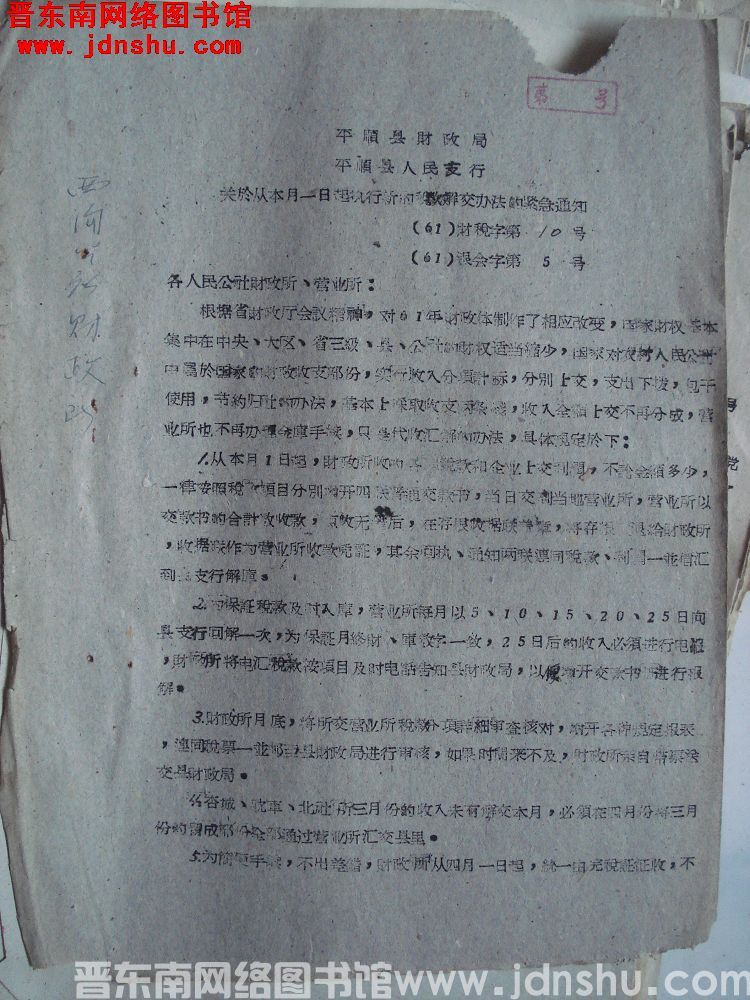 晋东南网络图书馆
www.jdnshu.com
第 号
平順县財政局
平順县人民支行
关於从本月一日起执行新的税款解交办法的緊急通知
(61)財税字第10号
(61)银会字第5号
各人民公社財政所、营业所:
根据省財政厅会议精神,对61年財政体制作了相应改变,国家財权基本
集中在中央、大区、省三級、县、公社的財权适当縮少,国家对农村人民公社
中屬於国家的財政收支部份,实行收入分項計标,分別上交,支出下拨,包干
使用,节約归社的办法,基本上採取收支两条綫,收入全額上交不再分成,营
业所也不再办理金庫手续,只是代收汇解的办法,具体規定於下:
1.从本月1日起,財政所收的各項税款和企业上交利潤,不論金額多少,
一律按照税款項目分別填开四联 交款书,当日交到当地营业所,营业所以
交款书的合計数收款,点收无 后,在存根收据联 章,将存根 退給財政所
,收据联作为营业所收款凭証,其余回执、通知两联連同税款、利潤一並信汇
到县支行解庫。
2.为保証税款及时入庫,营业所每月以5、10、15、20、25日向
县支行回解一次,为保証月終財、庫数字一致,25日后的收入必須进行电汇
,財政所将电汇税款按項目及时电話告知县財政局,以便填开交款书 进行报
解。
3.財政所月底,将所交营业所税款分項詳細审查核对,填开各种規定报表
,連同税票一並 县財政局进行审核,如果时間来不及,財政所亲自带票送
交县財政局。
4.杏城、 車、北社 所三月份的收入未有解交本月,必須在四月份将三月
份的留成部份全部通过营业所汇交县里。
5.为簡便手续,不出差错,財政所从四月一日起,統一由完税証征收,不
西沟公社財政所
晋东南网络图书馆www.jdnshu.com